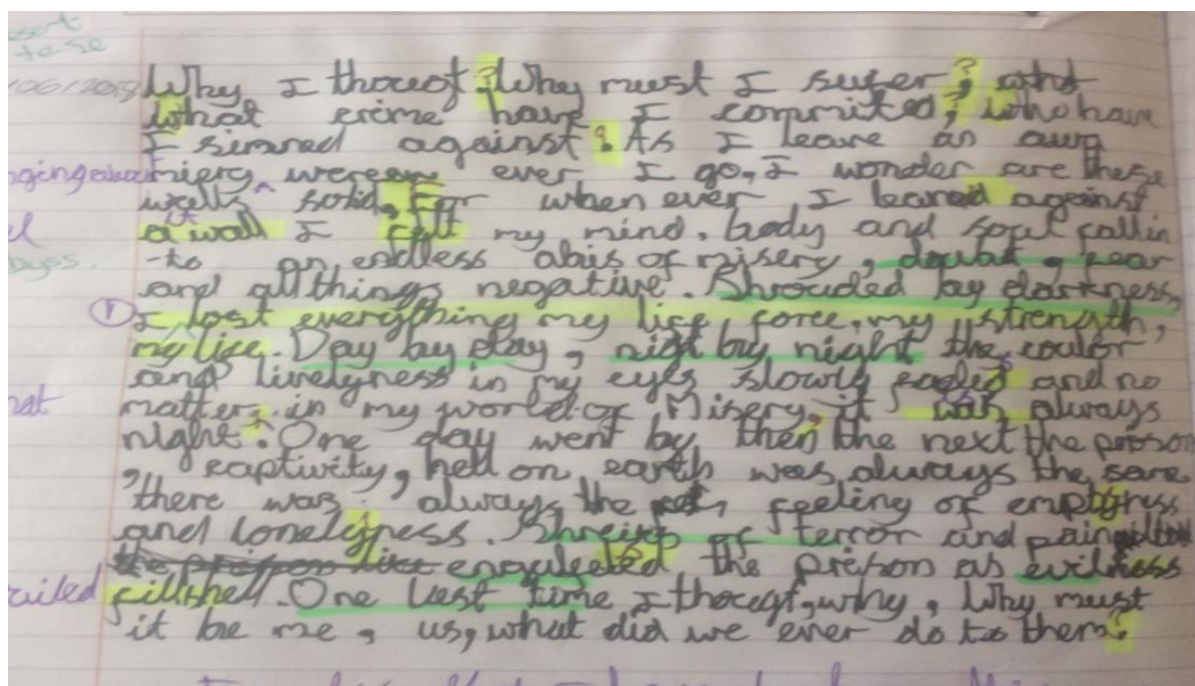 sert
te se
/06/2019 Why I thougt? Why must I sufer? who
what crime have I commited? who have
I sinned against? As I leave an
ging miery were ever I go, I wonder are these
walls solid. For when ever I leaned against
a wall I felt my mind, body and soul fallin
-to an endless abis of misery, doubt, fear
and all things negative. Shrouded by darkness,
I lost everything my life force, my strength,
my life. Day by day, nigt by night the coulor
and livelyness in my eyes slowly faded and no
matter in my world of Misery, it was always
night. One day went by then the next the prison
, captivity, hell on earth was always the same
there was always the feeling of emptyness
and lonelyness. Shreiks of terror and pain
the prison like enguleeted the prison as evilness
ailed fills hell. One last time I thougt, why, Why must
it be me, us, what did we ever do to them?